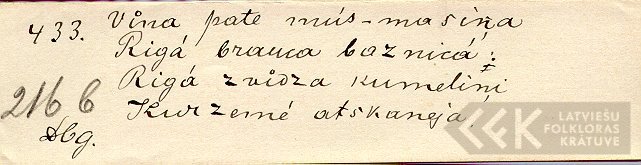 433. Vůna pate mús-masiņa
Rigá brauca baznicá;
Rigá zvůdza kumeliņi
216 b Kurzemé atskanéja.
Abg.
LATVIEŠU
FOLKLORAS
KRĀTUVE